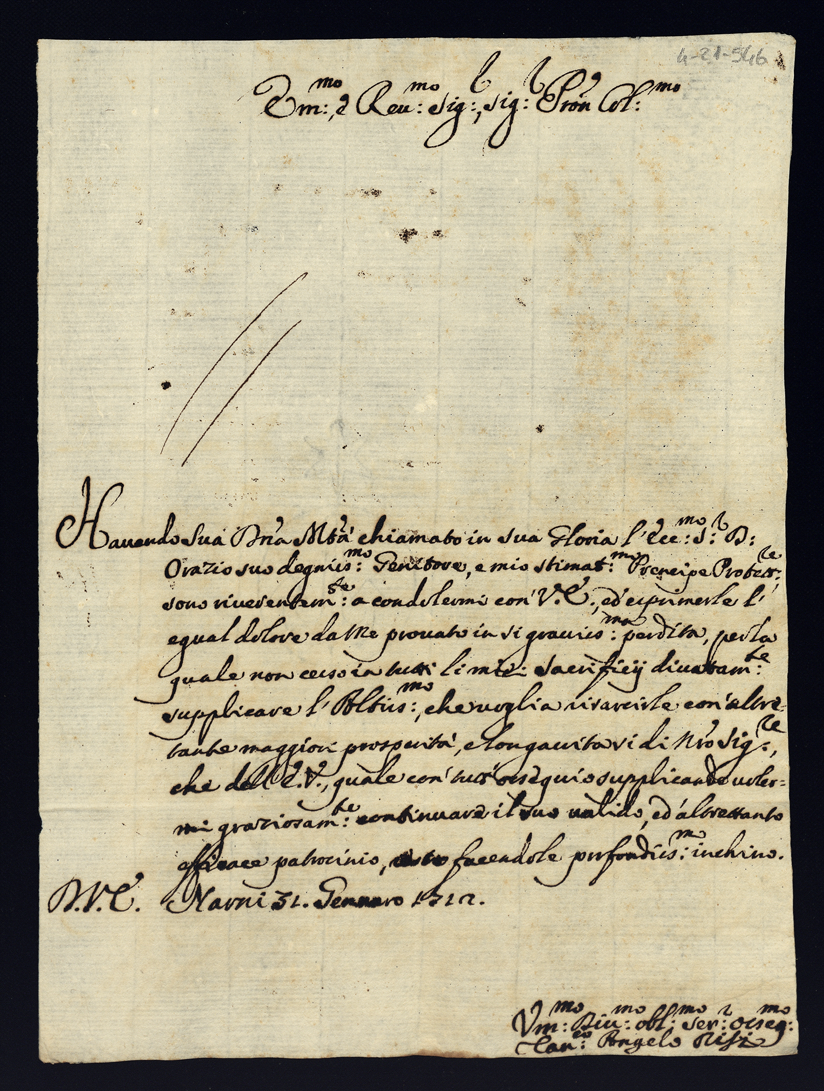 4-21-546
Em:mo, e Reu:mo Sig:r, Sig:r Prõn Col:mo
Hauendo Sua Diũa Mtà chiamato in sua Gloria l'Ecc:mo S:r D:
Orazio suo degnis:mo Genitore, e mio stimat:mo Prencipe Protett:re
sono riuerentem:te a condolermi con V. E., ed esprimerle l'
egual dolore da me prouato in si grauis:ma perdita, per la
quale non cesso in tutti li miei Sacrificij diuotam:te
supplicare l'Altis:mo, che uoglia risarcirle con altre-
tante maggiori prosperità, e longauita si di Nr̃o Sig:re,
che dell'E. V., quale con tutt'ossequio supplicando uoler-
mi graziosam:te continuare il suo ualido, ed altrettanto
efficace patrocinio, facendole profondis:mo inchino.
D. V. E. Narni 31. Gennaro 1712.
Vm:mo Diu:mo obl:mo ser:r osseq:mo
Can:co Angelo Risi